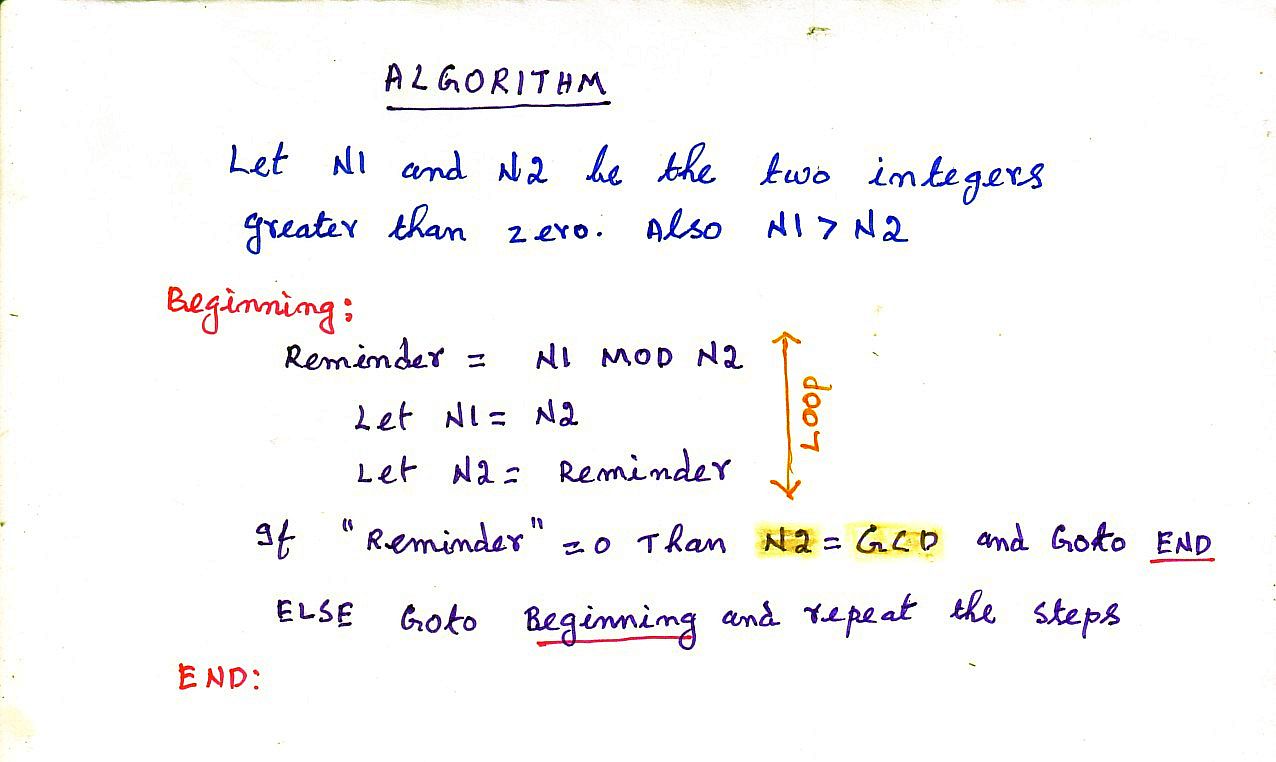 ALGORITHM
Let N1 and N2 be the two integers
greater than zero. Also N1 > N2
Beginning;
Reminder = N1 MOD N2
Let N1 = N2
Let N2 = Reminder
Loop
If "Reminder" = 0 Than N2 = GCD and Goto END
ELSE Goto Beginning and repeat the steps
END: